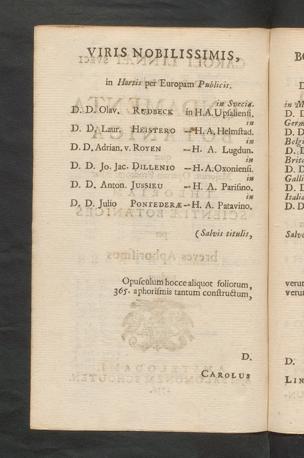 VIRIS NOBILISSIMIS,
in Hortis per Europam Publicis.
in Sveciæ.
D. D. Olav. RUDBECK in H.A. Upsaliensi.
in
D. D. Laur. HEISTERO —H. A. Helmstad.
in
D. D. Adrian. v. ROYEN —H. A. Lugdun.
in
D. D. Jo. Jac. DILLENIO —H. A. Oxoniensi.
in
D. D. Anton. JUSSIEU —H. A. Parisino.
in
D. D. Julio PONTEDERÆ —H. A. Patavino.
(Salvis titulis,
Opusculum hocce aliquot foliorum,
365. aphorismis tantum constructum,
D.
CAROLUS